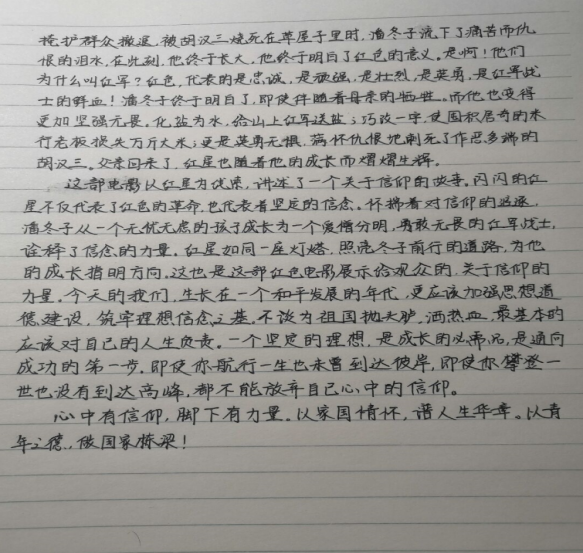 掩护群众撤退,被胡汉三烧死在草屋子里时,潘冬子流下了痛苦而仇
恨的泪水,在此刻,他终于长大,他终于明白了红色的意义。是啊!他们
为什么叫红军?红色,代表的是忠诚,是顽强,是壮烈,是英勇,是红军战
士的鲜血!潘冬子终于明白了,即使伴随着母亲的牺牲。而他也变得
更加坚强无畏,化盐为水,给山上红军送盐;巧改一字,使囤积居奇的米
行老板损失万斤大米;更是英勇无惧,满怀仇恨地刺死了作恶多端的
胡汉三。父亲回来了,红星也随着他的成长而熠熠生辉。
这部电影以红星为线索,讲述了一个关于信仰的故事。闪闪的红
星不仅代表了红色的革命,也代表着坚定的信念。怀揣着对信仰的追逐,
潘冬子从一个无忧无虑的孩子成长为一个爱憎分明,勇敢无畏的红军战士,
诠释了信念的力量。红星如同一座灯塔,照亮冬子前行的道路,为他
的成长指明方向。这也是这部红色电影展示给观众的,关于信仰的
力量。今天的我们,生长在一个和平发展的年代,更应该加强思想道
德建设,筑牢理想信念之基。不谈为祖国抛头颅,洒热血,最基本的
应该对自己的人生负责。一个坚定的理想,是成长的必需品,是通向
成功的第一步,即使你航行一生也未曾到达彼岸,即使你攀登一
世也没有到达高峰,都不能放弃自己心中的信仰。
心中有信仰,脚下有力量。以家国情怀,谱人生华章。以青
年之德,做国家栋梁!